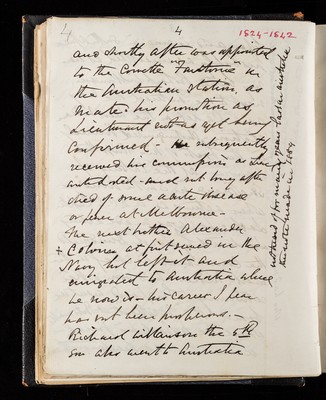 4
4
1824-1842
and shortly after was appointed
to the Corvette "Favourite" in
the Australian Station, as
Mate his promotion as
Lieutenant not as yet being
Confirmed - He subsequently
received his commission as Lieut
antedated - and not long after
died of some acute disease
or fever at Melbourne -
The next brother Alexander
+ Colvine at first served in the
Navy but left it and
emigrated to Australia where
he now is - his career I fear
has not been prosperous. -
Richard Wilkinson the 5th
son also went to Australia
not heard of for many years last in Australia
this note made in 1884